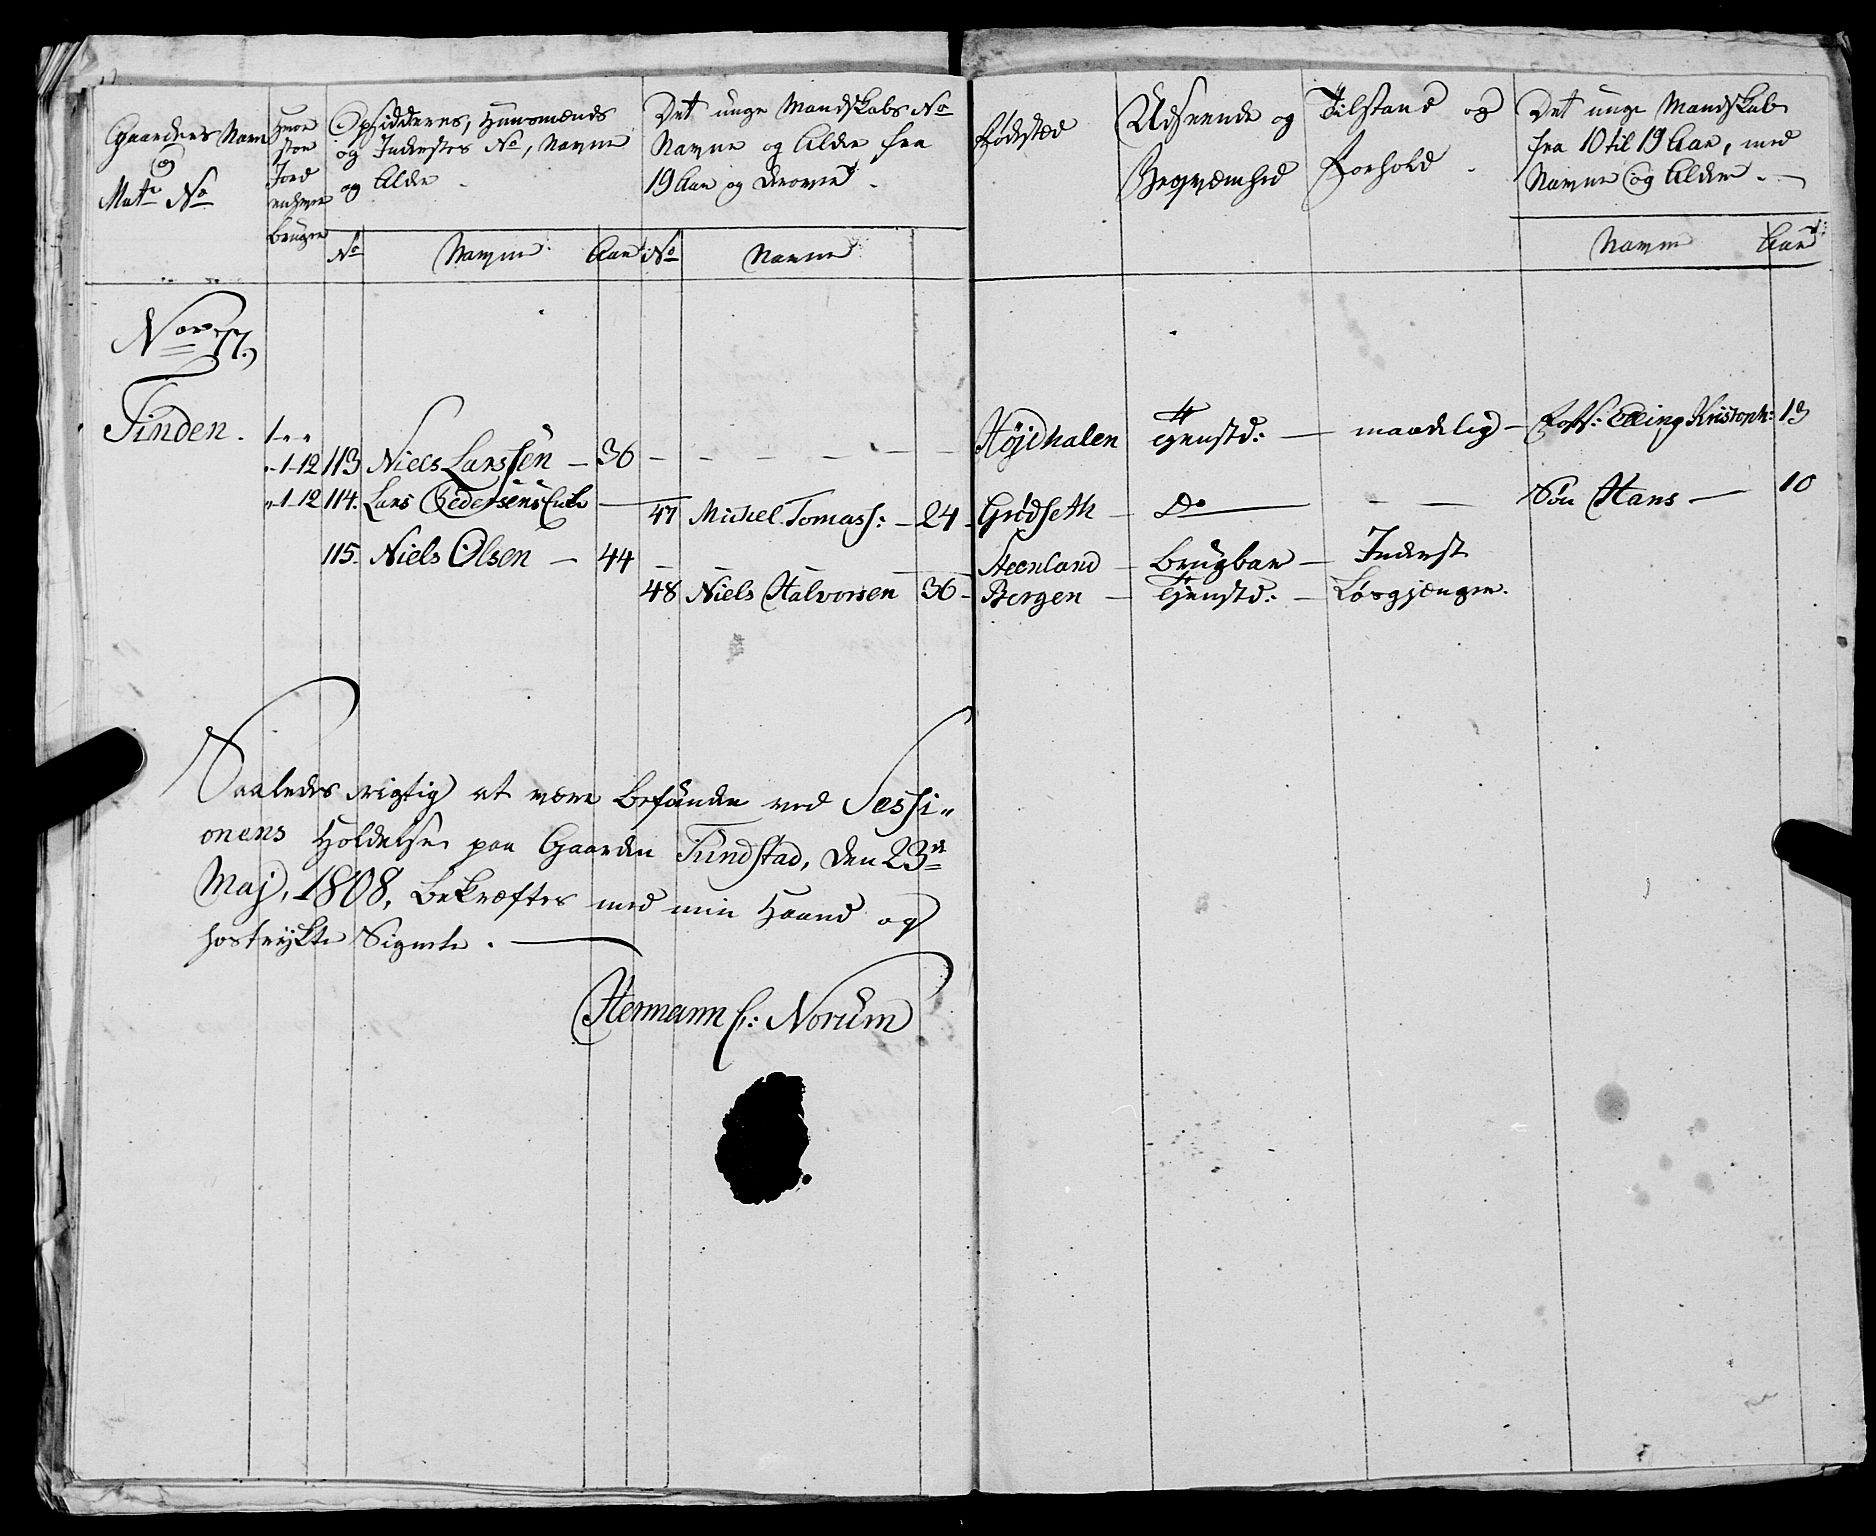 Gaardens Navn
og
Mat: No
Hvor
stor
Jord
enhver
bruger
Opsiddernes, Huusmænds
og Indersters No, Navne
og Alder
Det unge Mandskabs No
Navne og Alder fra
19 Aar og derover.
Fødested
Udseende og
Beqvæmhed
Tilstand og
Forhold.
Det unge Mandskab
fra 10 til 19 Aar, med
Navne og Alder.
No Navne Aar No Navne
Navne Aar
No 77.
Tinden. 1 - -
- 1 - 12 113 Niels Larssen — 36 — — — — Højehalen — tjenstd: — maadelig — Elling Kristoph: 13
- 1 - 12 114. Lars Pedersens Enke — 47 Mickel Tomass: — 24 — Grødseth — Do — — — Søn Hans — 10
115. Niels Olsen — 44 — — — Steenland — brugbar — Inderst
48 Niels Halvorsen 36 — Bergen — tjenstd: — Løsgjænger.
Saaledes rigtig at være befunden ved Sessi-
onens Holdelse paa Gaarden Tundstad, den 23de
Maj, 1808, bekræftes med min Haand og
hostrykte Signete.
Hermann Norum